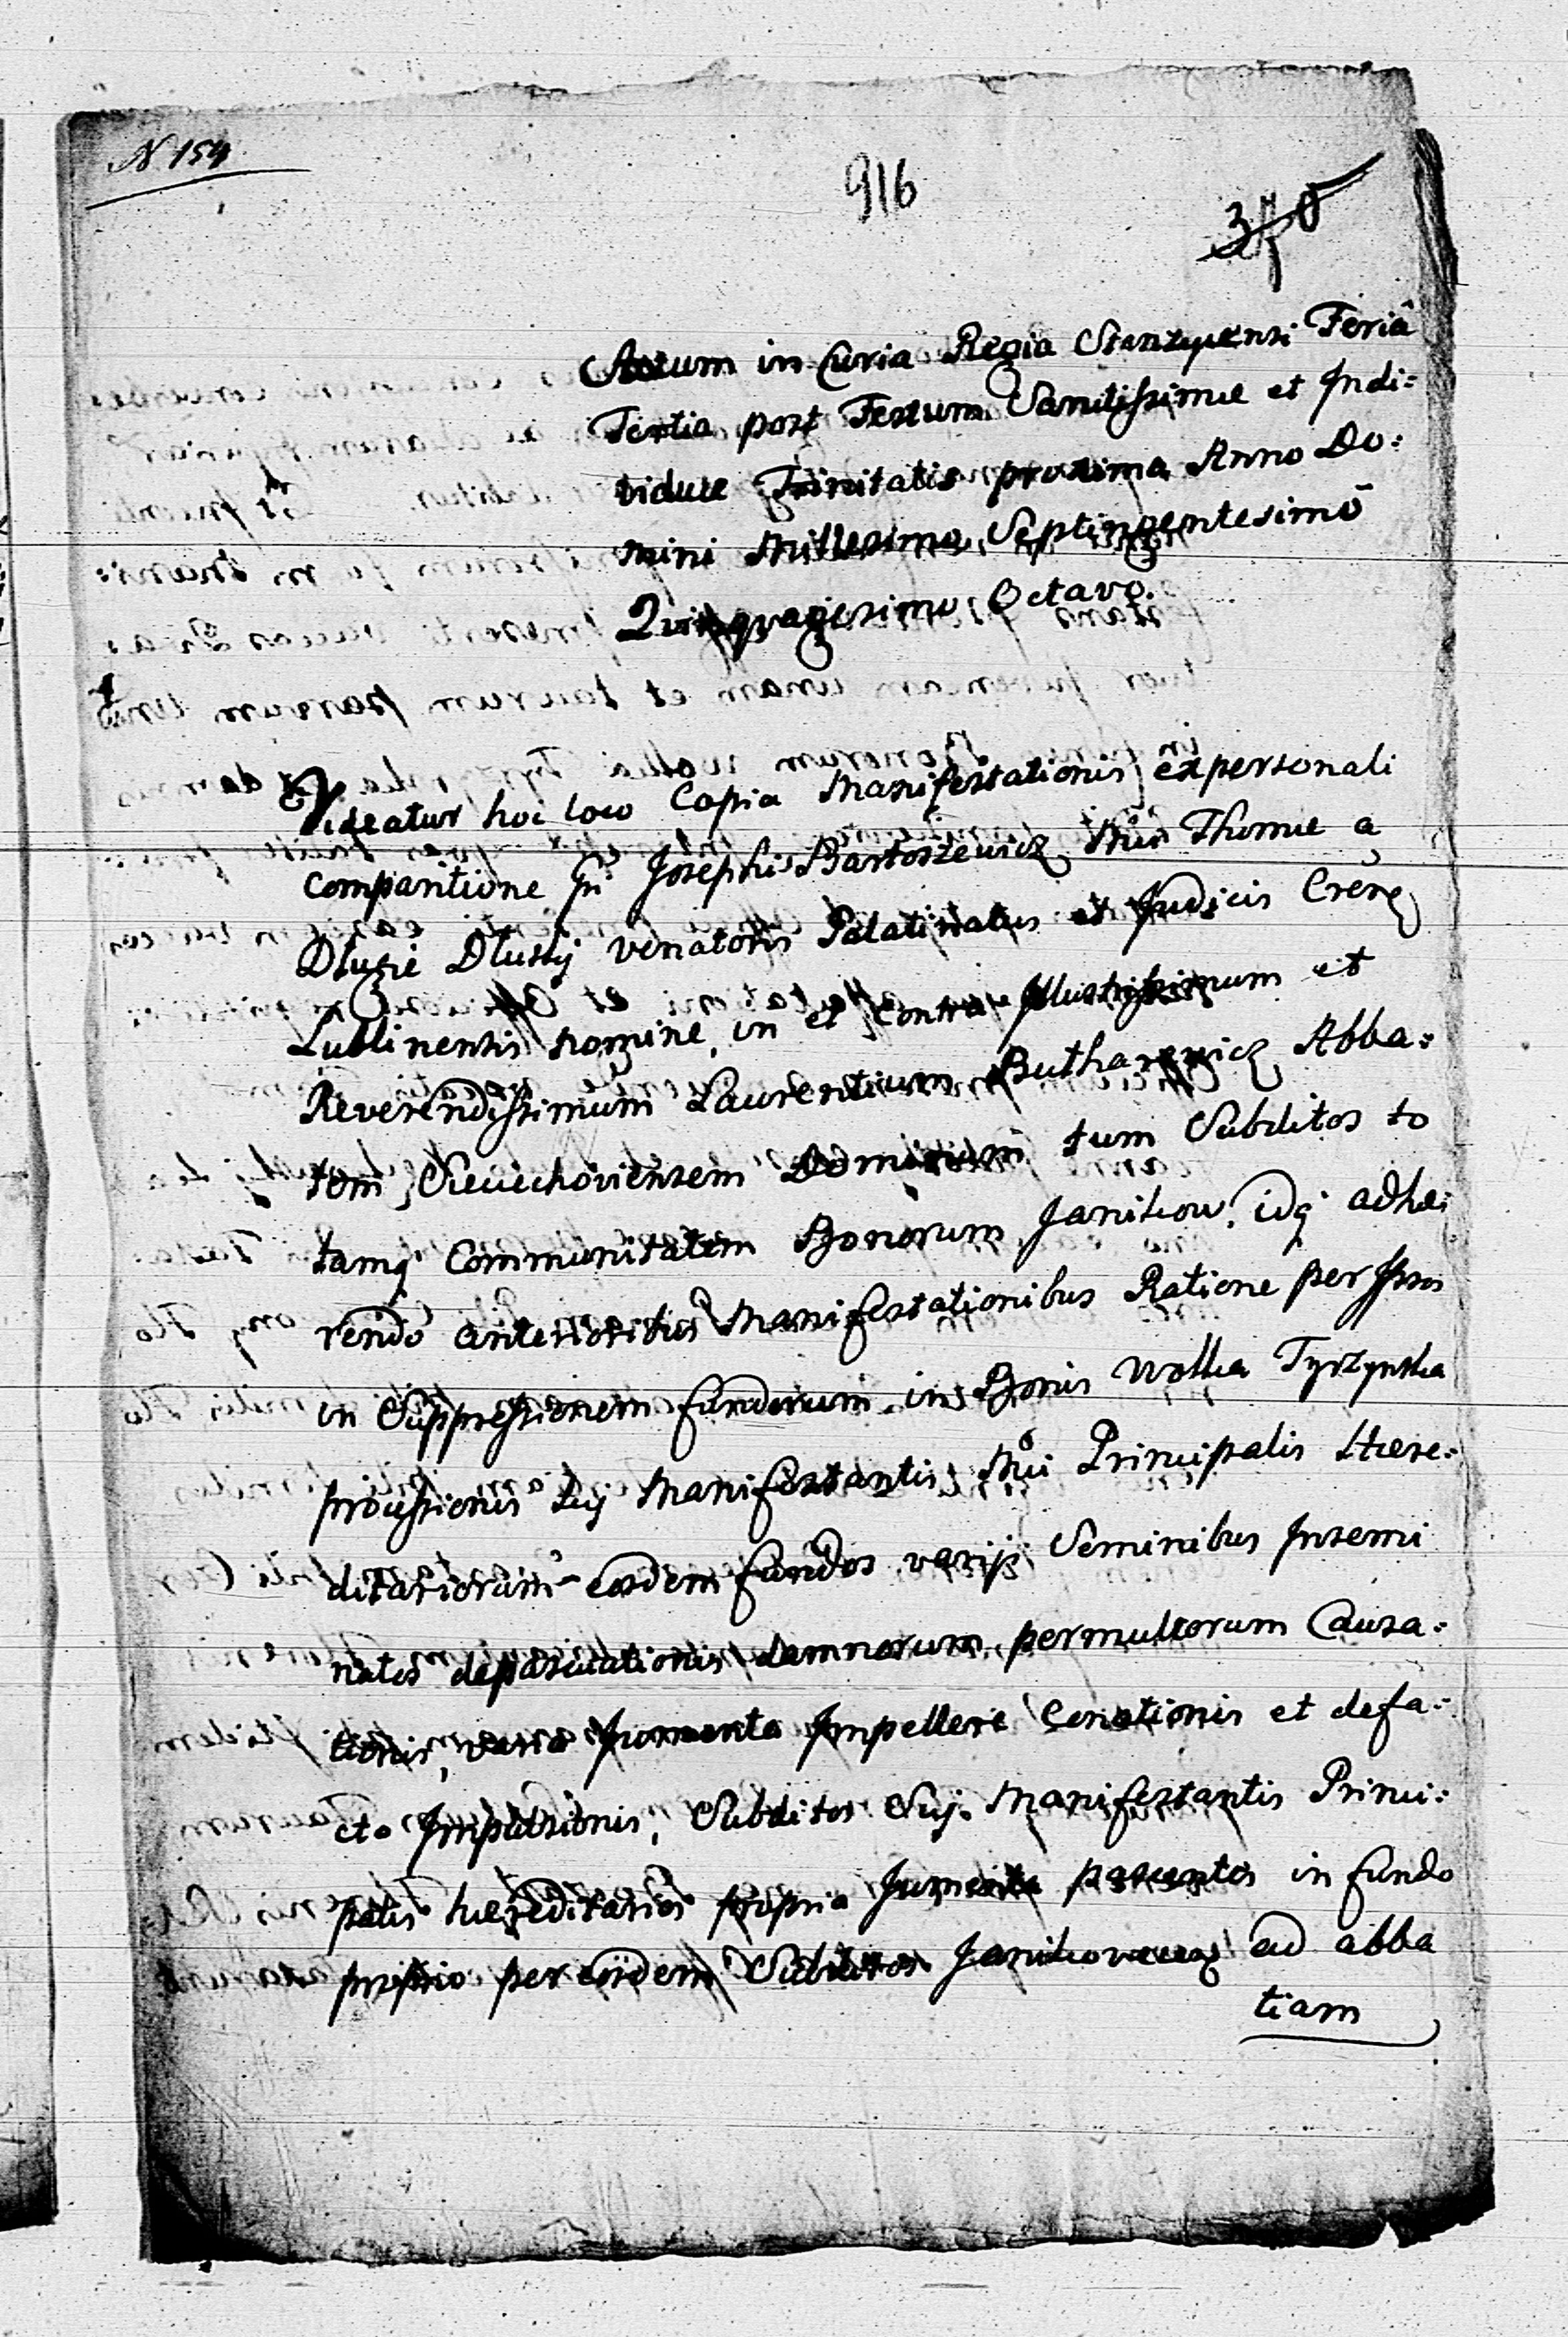 N 154
916
370
Actum in Curia Regia Stanzycensi Feriâ
Tertia post Festum Sanctissimæ et Indi:
viduæ Trinitatis proxima Anno Do:
mini Millesimo Septingentesimō
Quinquagesimo Octavo.
Videatur hoc loco Copia Manifestationis expersonali
comparitione Josephi Bartoszewicz Thomæ a
Dłużie Dłuskij venatoris Palatinatus et Judicis
Lublinensis nomine, in et contra Illustrissimum et
Reverendissimum Laurentium Butharewicz Abba:
tem Sieciechoviensem Dominum tum Subditos to
tamq Communitatem Bonorum Janikow. idq adhæ:
rendo anterioribus Manifestationibus Ratione per Ipsos
in Suppressionem fundorum in Bonis Wolka Tyrzynska
processionis Suj Manifestantis Principalis Hære:
ditariorum eosdem fundos varijs Seminibus Insemi
natos depascuationis damnorum permultorum Causa:
tionis, varia Jumenta Impellere Conationis et defa:
cto Impulsionis, Subditos Suj. Manifestantis Princi:
palis hæreditarios propria Jumenta pascentes in fundo
proprio per eosdem Subditos ad abba
tiam